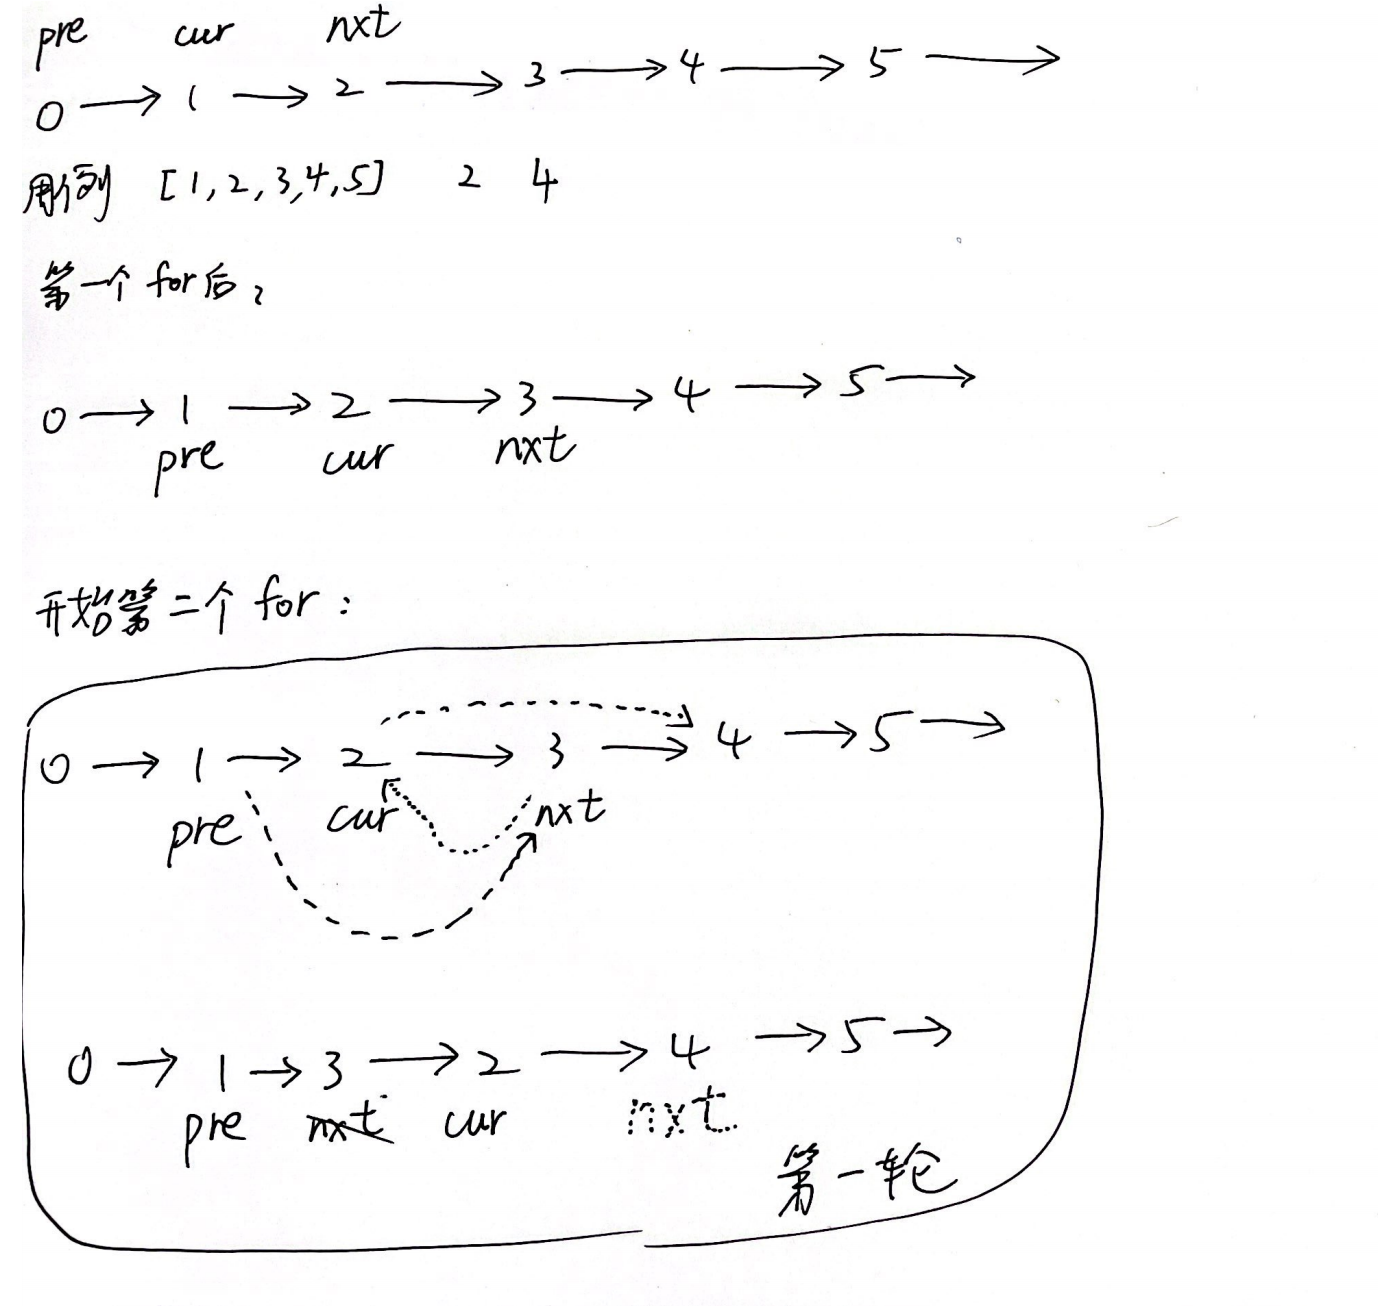 pre cur nxt
0 → 1 → 2 → 3 → 4 → 5 →
用例 [1,2,3,4,5] 2 4
第一个 for后,
0 → 1 → 2 → 3 → 4 → 5 →
pre cur nxt
开始第二个 for:
0 → 1 → 2 → 3 → 4 → 5 →
pre cur nxt
0 → 1 → 3 → 2 → 4 → 5 →
pre nxt cur nxt
第一轮